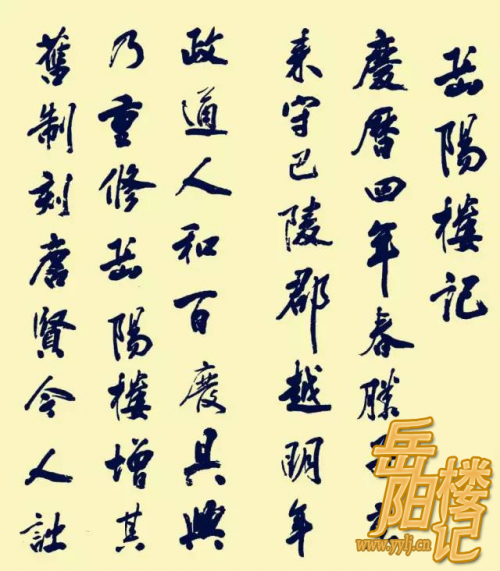 岳陽樓記
慶曆四年春滕
來守巴陵郡越明年
政通人和百廢具興
乃重修岳陽樓增其
舊制刻唐賢今人詩
岳阳楼记
www.yylj.cn